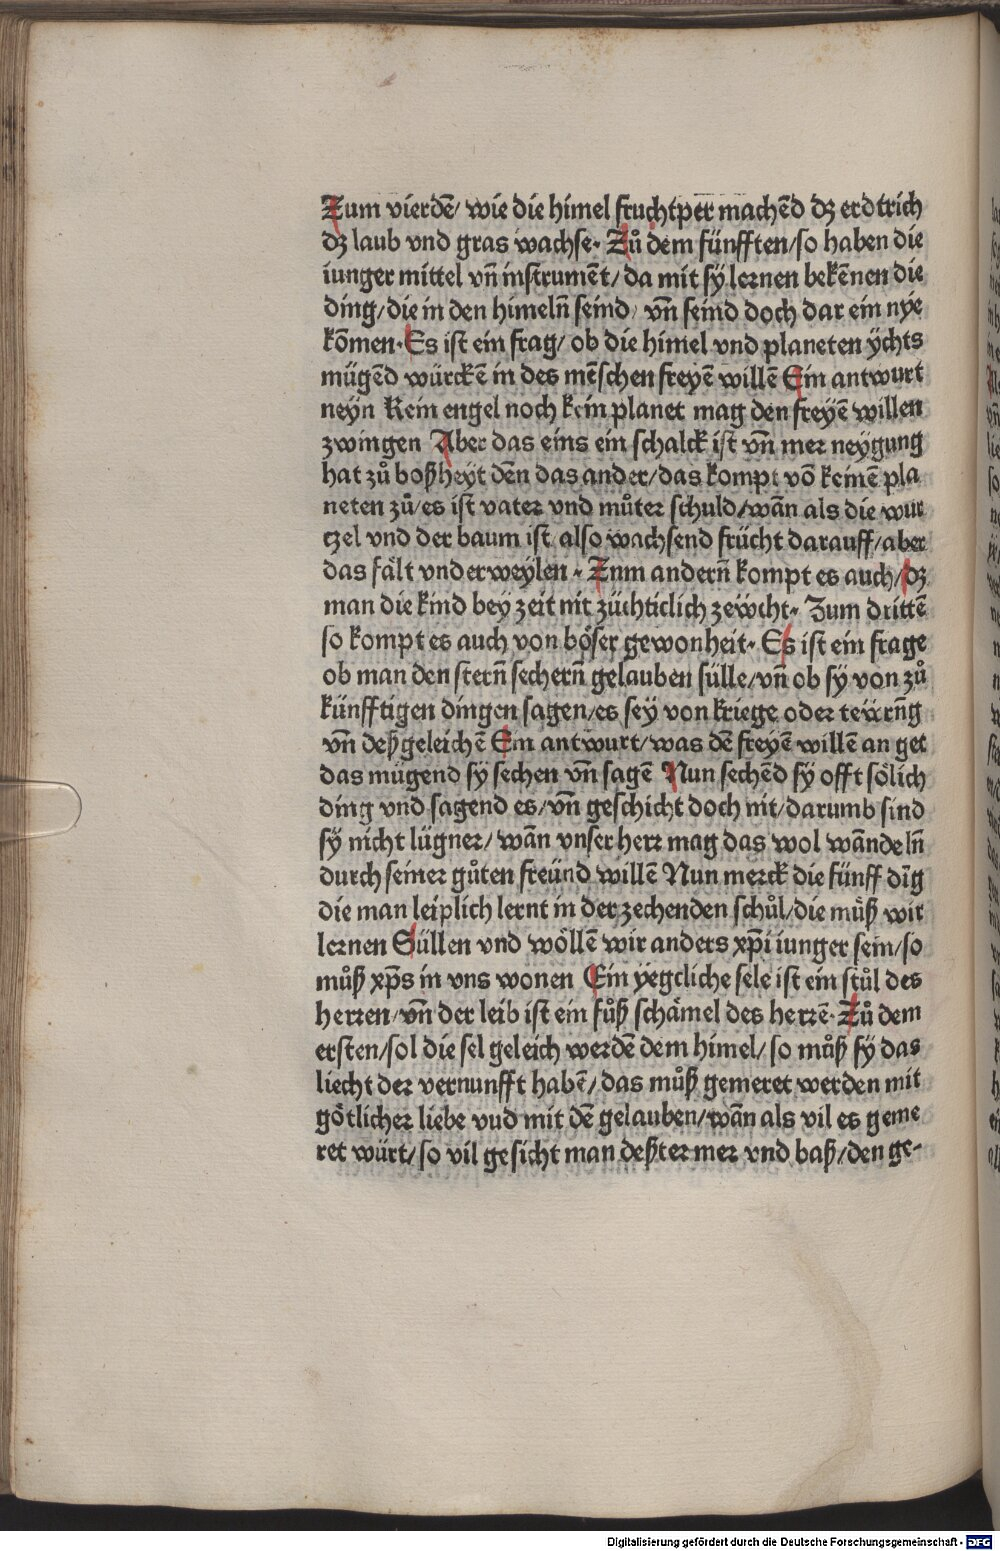 Zum vierdē/ wie die himel fruchtper machēd dz erdtrich
dz laub vnd gras wachse. Zů dem fünfften/so haben die
iunger mittel vn̄ instrumēt/ da mit sÿ lernen bekēnen die
ding/die in den himeln̄ seind/ vn̄ seind doch dar ein nye
kōmen. Es ist ein frag/ ob die himel vnd planeten ÿchts
mügēd würckē in des mēschen freyē willē Ein antwurt
neÿn Kein engel noch kein planet mag den freyē willen
zwingen Aber das eins ein schalck ist vn̄ mer neÿgung
hat zů boßheÿt dēn das ander/das kompt vō keinē pla
neten zů/es ist vater vnd můter schuld/wān als die wur
tzel vnd der baum ist also wachsend frücht darauff/aber
das fält vnderweÿlen. Znm andern̄ kompt es auch/dz
man die kind bey zeit nit züchticlich zeẅcht. Zum drittē
so kompt es auch von böser gewonheit. Es ist ein frage
ob man den stern̄ sechern̄ gelauben sülle/vn̄ ob sÿ von zů
künfftigen dingen sagen/es seÿ von kriege oder teẅrn̄g
vn̄ deßgeleichē Ein antwurt/was dē freyē willē an get
das mügend sÿ sechen vn̄ sagē Nun sechēd sÿ offt sölich
ding vnd sagend es/vn̄ geschicht doch nit/darumb sind
sÿ nicht lügner/ wān vnser herr mag das wol wāndeln̄
durch seiner gůten freünd willē Nun merck die fünff dīg
die man leiplich lernt in der zechenden schůl/die můß wir
lernen Süllen vnd wöllē wir anders xp̄i iunger sein/so
můß xp̄s in vns wonen Ein ÿegcliche sele ist ein stůl des
herren/vn̄ der leib ist ein fůß schämel des herrē. Zů dem
ersten/sol die sel geleich werdē dem himel/ so můß sÿ das
liecht der vernunfft habē/das můß gemeret werden mit
götlicher liebe vud mit dē gelauben/wān als vil es geme
ret würt/so vil gesicht man deßter mer vnd baß/den ge-
Digitalisierung gefördert durch die Deutsche Forschungsgemeinschaft - DFG